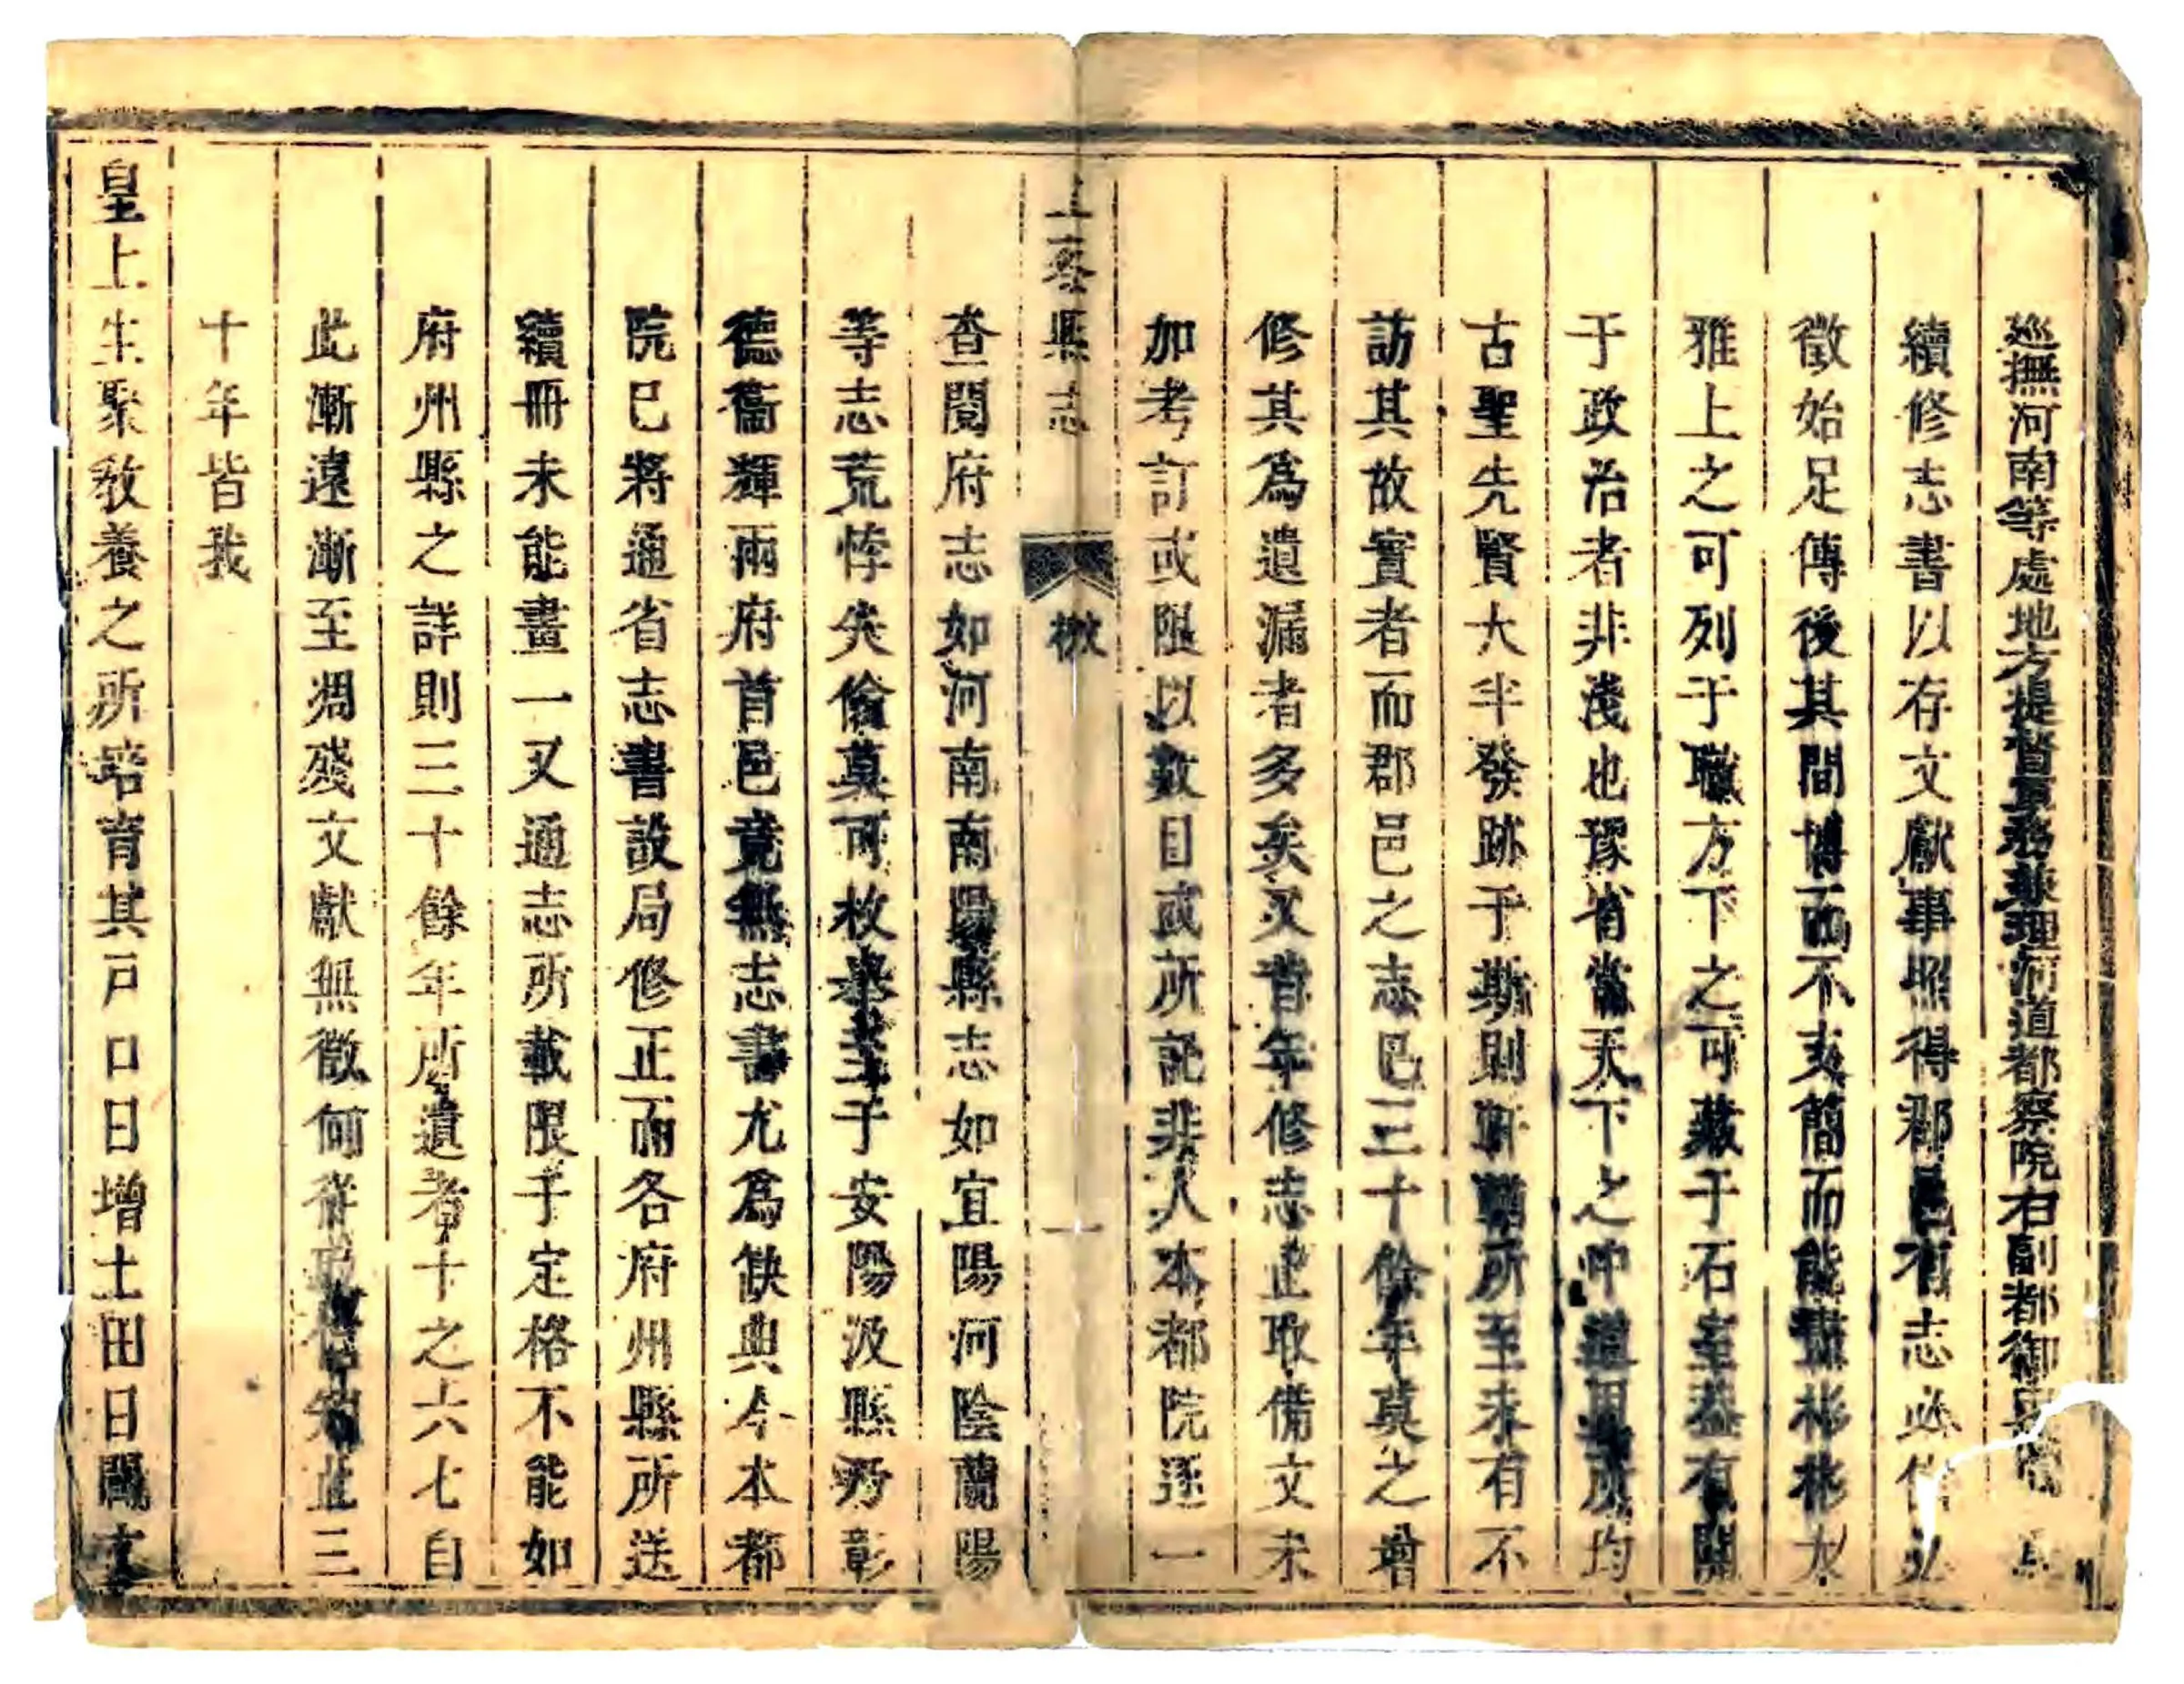 巡撫河南等處地方提督軍務兼理河道都察院右副都御史
續修志書以存文獻事照得郡邑有志必信必
徵始足傳後其間博而不支簡而能彬彬大
雅上之可列于職方下之可藏于石室蓋有關
于政治者非淺也豫省當天下之中道里所均
古聖先賢大半發跡于斯則所至未有不
訪其故實者而郡邑之志已三十餘年莫之增
修其爲遺漏者多矣又昔年修志止取備文未
加考訂或限以數目或所託非人本都院逐一
上蔡縣志 檄 一
查閱府志如河南南陽縣志如宜陽河陰蘭陽
等志荒悖失倫莫可枚舉至于安陽汲縣乃彰
德衞輝兩府首邑竟無志書尤爲缺典今本都
院已將通省志書設局修正而各府州縣所送
續冊未能畫一又通志所載限于定格不能如
府州縣之詳則三十餘年所遺者十之六七自
此漸遠漸至凋殘文獻無徵何從知此三
十年皆我
皇上生聚敎養之所培育其戸口日增土田日闢文